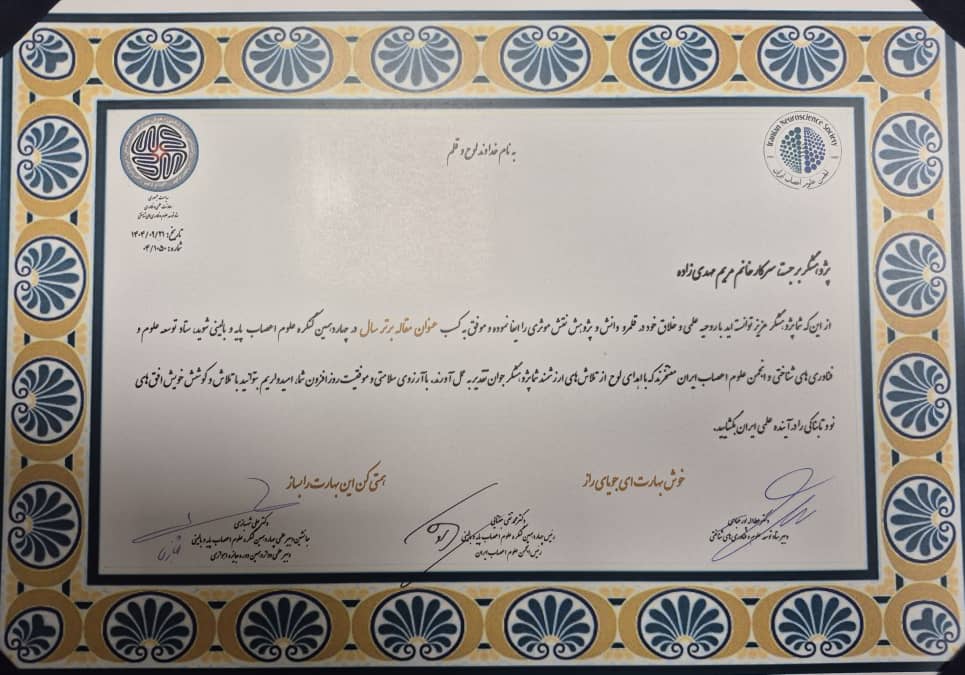 به نام خداوند لوح و قلم
Iranian Neuroscience Society
انجمن علوم اعصاب ایران
ریاست جمهوری
معاونت علمی و فناوری
ستاد توسعه علوم و فناوری‌های شناختی
تاریخ: ۱۴۰۴/۰۹/۲۱
شماره: ۰۴/۱۰۵۰
پژوهشگر برجسته سرکار خانم مریم مهدی زاده
از این که شما پژوهشگر عزیز توانسته اید با روحیه علمی و خلاق خود در قلمرو دانش و پژوهش نقش موثری را ایفا نموده و موفق به کسب عنوان مقاله برتر سال در چهاردهمین کنگره علوم اعصاب پایه و بالینی شوید، ستاد توسعه علوم و
فناوری های شناختی و انجمن علوم اعصاب ایران مفتخرند که با اهدای لوح از تلاش های ارزشمند شما پژوهشگر جوان تقدیر به عمل آورند. با آرزوی سلامتی و موفقیت روز افزون شما، امیدواریم بتوانید با تلاش و کوشش خویش افق های
نو و تابناکی را در آینده علمی ایران بگشایید.
خوش بهارت ای جویای راز
همتی کن این بهارت را بساز
دکتر
دبیر ستاد توسعه علوم و فناوری های شناختی
دکتر محمد تقی
رئیس چهاردهمین کنگره علوم اعصاب پایه و بالینی
رئیس انجمن علوم اعصاب ایران
دکتر علی شهبازی
جانشین دبیر علمی چهاردهمین کنگره علوم اعصاب پایه و بالینی
دبیر علمی دوازدهمین دوره جایزه